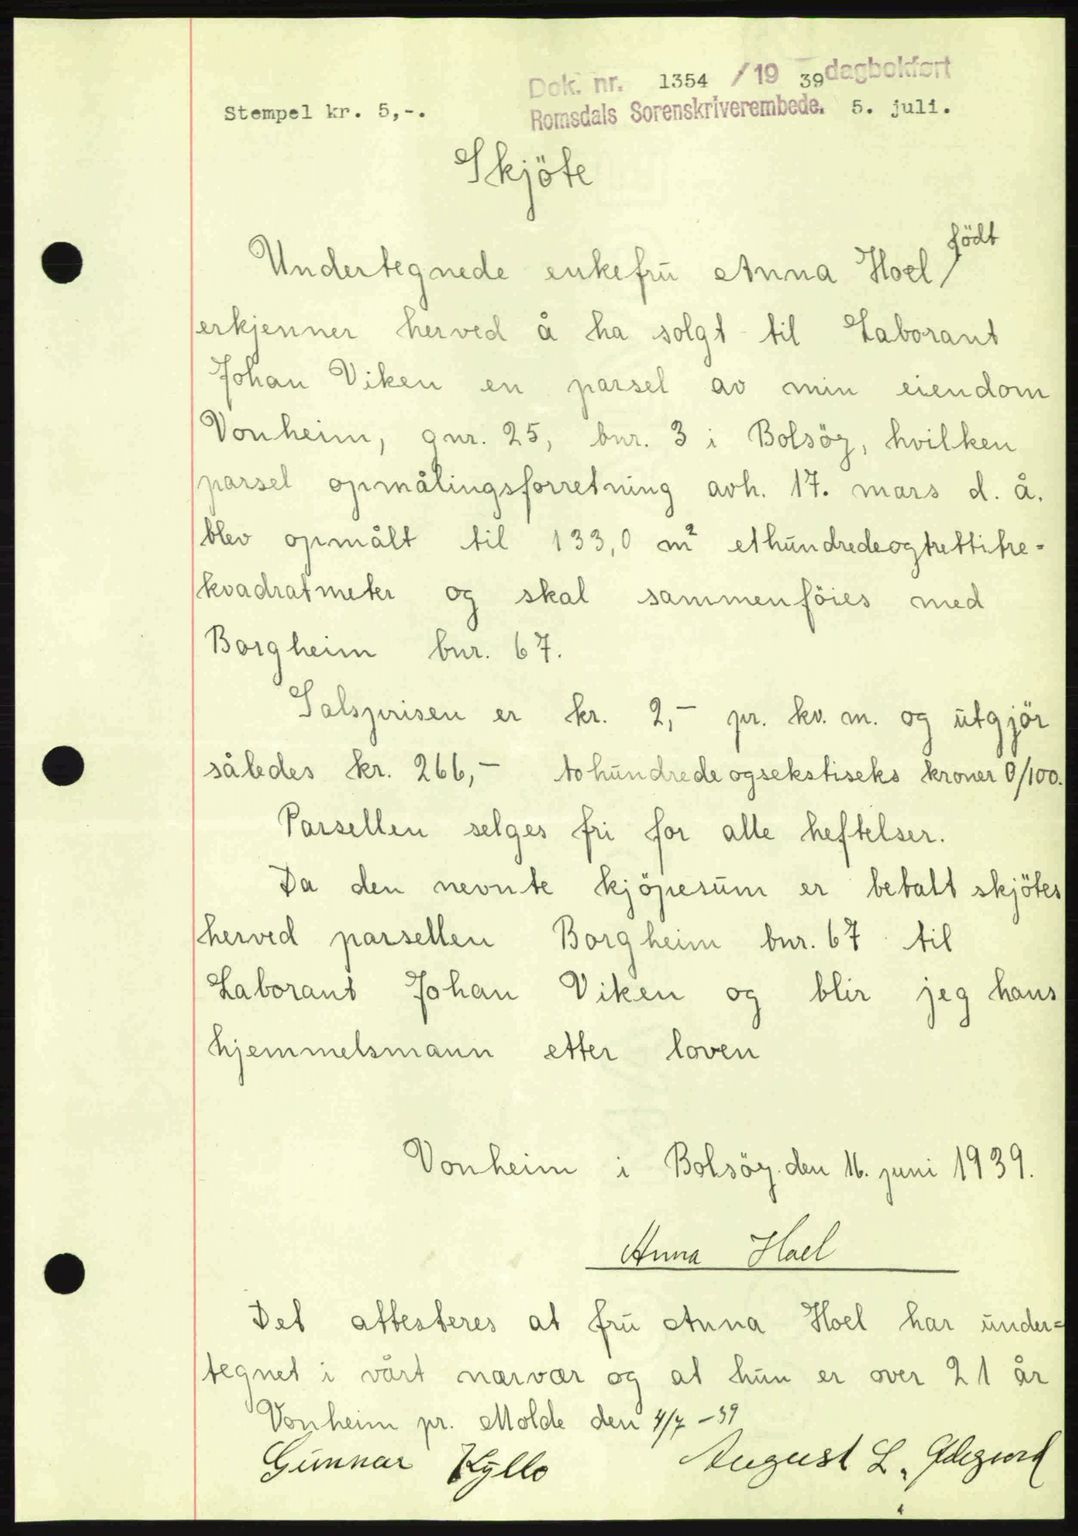 Dok. nr. 1354 /19 39 dagbokført
Stempel kr. 5,-. Romsdals Sorenskriverembede. 5. juli.
Skjöte
Undertegnede enkefru Anna Hoel / födt
erkjenner herved å ha solgt til Laborant
Johan Viken en parsel av min eiendom
Vonheim, gnr. 25, bnr. 3 i Bolsöy, hvilken
parsel opmålingsforretning avh. 17. mars d. å.
blev opmålt til 133,0 m² ethundredeogtrettitre-
kvadratmeter og skal sammenföies med
Borgheim bnr. 67.
Salsprisen er kr. 2,- pr. kv. m. og utgjör
således kr. 266,- tohundredeogsekstiseks kroner 0/100.
Parsellen selges fri for alle heftelser.
Da den nevnte kjöpesum er betalt skjötes
herved parsellen Borgheim bnr. 67 til
Laborant Johan Viken og blir jeg hans
hjemmelsmann etter loven
Vonheim i Bolsöy. den 16. juni 1939.
Anna Hoel
Det attesteres at fru Anna Hoel har under=
tegnet i vårt nærvær og at hun er over 21 år
Vonheim pr. Molde den 4/7 -39
Gunnar Kyllo August L. Ødegård